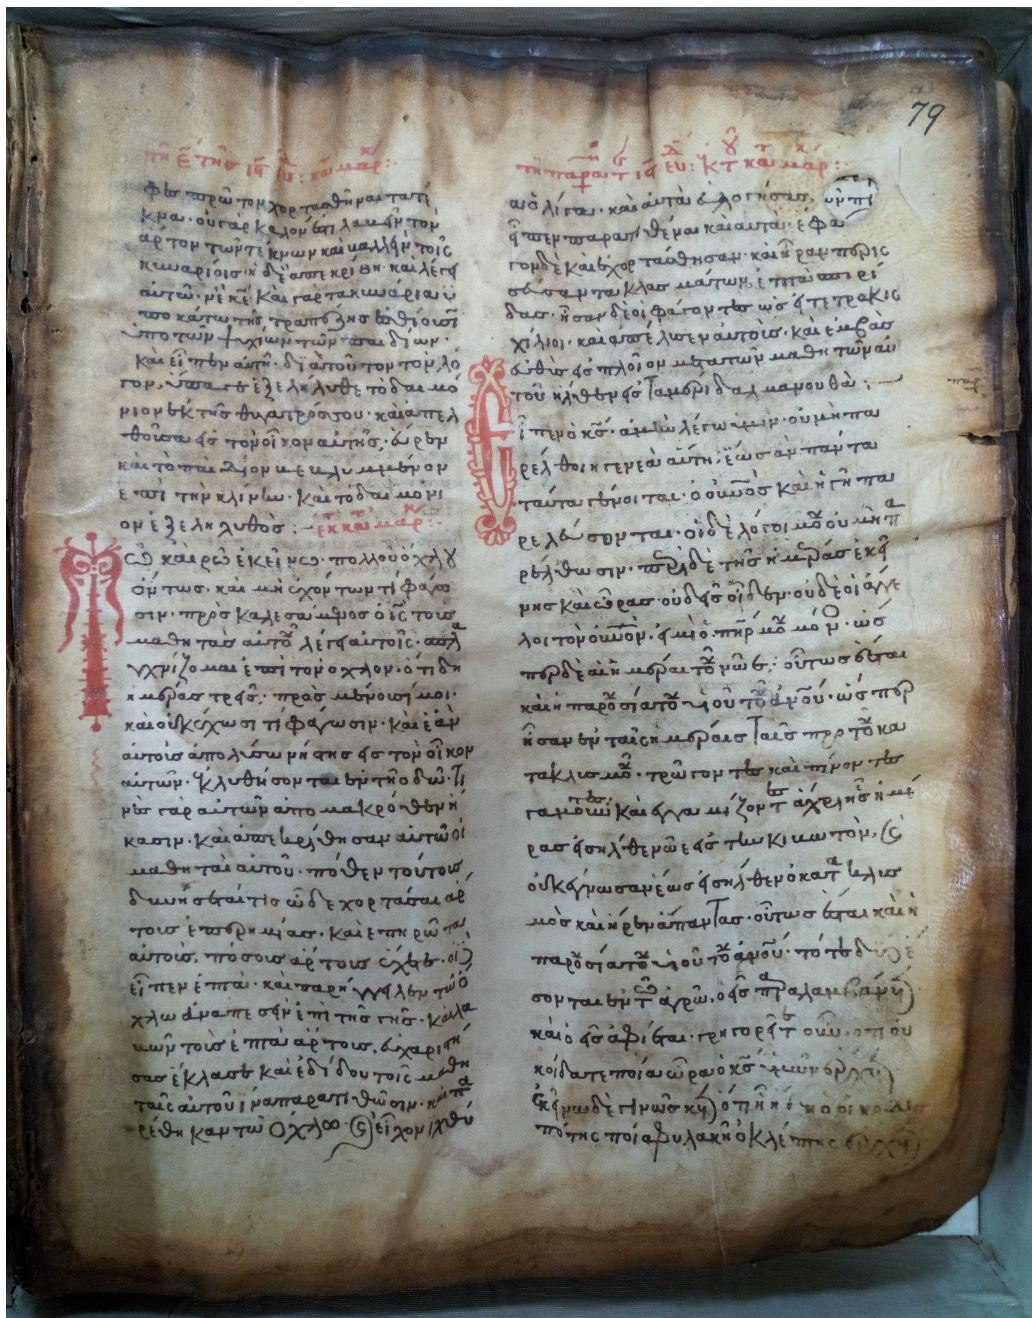 79
φες πρῶτον χορτασθῆναι τα τέ
κνα· οὐ γὰρ καλόν ἐστι λαβεῖν τὸν
ἄρτον τῶν τέκνων καὶ βαλλεῖν τοῖς
κυναρίοις· ἡ δὲ ἀπεκρίθη· καὶ λέγει
αὐτῶ· ναὶ κε καὶ γὰρ τὰ κυνάρια ὑ
ποκάτω τῆς τραπέζης ἐσθίουσιν
ἀπὸ τῶν ψυχίων τῶν παιδίων·
καὶ εἶπεν αὐτῆ· διὰ τοῦτον τὸν λό
γον, ὕπαγε ἐξελήλυθε τὸ δαιμό
νιον ἐκ τῆς θυγατρός σου· καὶ ἀπελ
θοῦσα εἰς τὸν οἶκον αὐτῆς· εὗρεν
καὶ τὸ παιδίον βεβλημμένον
ἐπὶ τὴν κλίνην· καὶ τὸ δαιμόνι
ον ἐξεληλυθός :
Τῶ καιρῶ ἐκείνω· πολλοῦ ὄχλου
ὄντως· καὶ μὴ ἐχόντων τί φάγω
σιν· προσκαλεσάμενος ὁ ις τοὺς
μαθητὰς αὐτοῦ λέγει αὐτοῖς· σπλα
γχνίζομαι ἐπὶ τὸν ὄχλον· ὅτι ἤδη
ἡμέρας τρεῖς· προσμένουσί μοι·
καὶ οὐκ ἔχωσι τί φάγωσιν· καὶ ἐὰν
αὐτοὺς ἀπολύσω νήστης εἰς τὸν οἶκον
αὐτῶν· ἐκλυθήσονται ἐν τῆ ὁδῶ· τι
νὲς γὰρ αὐτῶν ἀπὸ μακρόθεν ἥ
κασιν· καὶ ἀπεκρίθησαν αὐτῶ οἱ
μαθηταὶ αὐτοῦ· πόθεν τούτους
δυνήσεταί τις ὧδε χορτάσαι ἄρ
τοις ἐπ' ἐρημίας· καὶ ἐπηρώτα
αὐτούς, πόσους ἄρτους ἔχετε· οἱ δὲ
εἶπεν ἑπτά· καὶ παρήγγειλεν τῶ ὄ
χλω ἀναπεσεῖν ἐπὶ τῆς γῆς· καὶ λα
βων τοὺς ἑπτὰ ἄρτους, εὐχαριστή
σας ἔκλασε καὶ ἐδίδου τοῖς μαθη
ταῖς αὐτοῦ ἵνα παρατιθῶσιν· καὶ πα
ρέθηκαν τῶ ὄχλω· καὶ εἶχον ἰχθύ
αὐτὰ εὐλογήσας,
εἶπεν παραπιθέναι καὶ αὐτά· ἔφα
γον δὲ καὶ ἐχορτάσθησαν· καὶ ἦραν περισ
σεύσαντα κλασμάτων, ἑπτὰ σπυρί
δας· ἦσαν δὲ οἱ φάγοντες ὡς τετρακισ
χίλιοι· καὶ ἀπέλυσεν αὐτούς· καὶ ἐμβὰς
εὐθὺς εἰς πλοῖον μετὰ τῶν μαθητῶν αὐ
τοῦ ἦλθεν εἰς Γαμερὶ δαλμανουθά :
Εἶπεν ὁ κς· ἀμὴν λέγω ὑμῖν· οὐ μὴ πα
ρέλθοι ἡ γενεὰ αὕτη, ἕως ἂν πάντα
ταῦτα γένοιται· ὁ οὐνος καὶ ἡ γῆ πα
ρελεύσονται· οἱ δὲ λόγοι μου οὐ μὴ πα
ρέλθωσιν· περὶ δὲ τῆς ἡμέρας ἐκεί
νης καὶ ὥρας· οὐδεὶς οἶδεν· οὐδὲ οἱ ἄγγε
λοι τῶν οὐνῶν, εἰ μὴ ὁ πηρ μου μόν· ὡς
περ δὲ αἱ ἡμέραι τοῦ νῶε· οὕτως ἔσται
καὶ ἡ παρουσία τοῦ υἱοῦ τοῦ ἀνοῦ· ὥσπερ
ἦσαν ἐν ταῖς ἡμέραις ταῖς πρὸ τοῦ κα
τακλισμοῦ· τρώγοντες καὶ πίνοντες
γαμοῦντες καὶ ἐγγαμίζοντες ἄχρι ἧς ἡμέ
ρας εἰσῆλθεν νῶε εἰς τὴν κιβωτόν, καὶ
οὐκ ἔγνωσαν ἕως εἰσῆλθεν ὁ κατακλισ
μὸς καὶ ἦρεν ἅπαντας· οὕτως ἔσται καὶ ἡ
παρουσία τοῦ υἱοῦ τοῦ ἀνοῦ· τότε δύο ἔ
σονται ἐν τῶ ἀγρῶ, ὁ εἷς παραλαμβάνεται
καὶ ὁ εἷς ἀφίεται· γρηγορεῖτε οὖν· ὅτι οὐ
κ οἴδατε ποία ὥρα ὁ κς ὑμῶν ἔρχεται
ἐκεῖνω δὲ γινώσκετε ὅτι
ποία φυλακῆ ὁ κλέπτης ἔρχεται